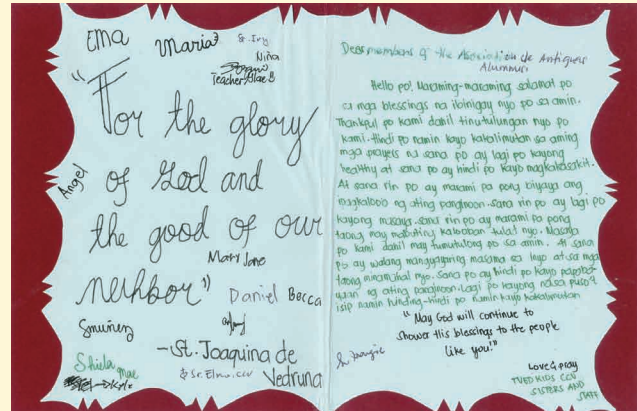 Ema
Maria
Sr. Iry
Niña
Teacher Glae B
"For the glory
of God and
Angel
the good of our
Mary Jane
neighbor"
Daniel Becca
Smuñez
- St. Joaquina de
Vedruna
Shiela mae
& Sr. Elma, ccv
Dear members of the Asociation de Antiguas
Alumnus
Hello po! Maraming-maraming salamat po
sa mga blessings na ibinigay nyo po sa amin.
Thankful po kami dahil tinutulungan nyo po
kami. Hindi po namin kayo kakalimutan sa aming
mga prayers na sana po ay lagi po kayong
healthy at sana po ay hindi po kayo magkakasakit.
At sana rin po ay marami pa pong biyaya ang
magkaloob ng ating panginoon. sana rin po ay lagi po
kayong masaya. sana rin po ay marami pa pong
taong may mabuting kalooban tulad nyo. Masaya
po kami dahil may tumutulong po sa amin. At sana
po ay walang mangyayaring masama sa inyo at sa mga
taong minamahal nyo. sana po ay hindi po kayo
ng ating panginoon. Lagi po kayong nasa puso't
isip namin hinding-hindi po namin kayo kakalimutan
"May God will continue to
shower this blessings to the people
like you!"
Love & pray
TVED KIDS CCV
SISTERS AND
STAFF